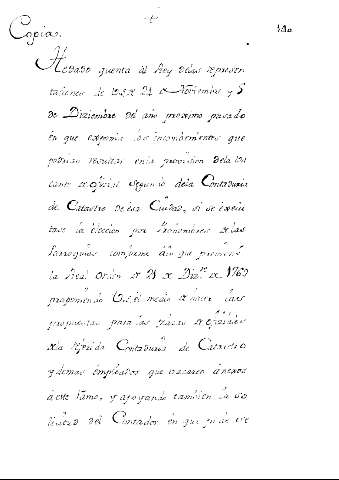 Copias.
He dado quenta al Rey delas represen
taciones de V.S. de 21 de Noviembre y 5
de Diziembre del año proximo pasado
en que exponia los inconbenientes que
podrian resultar en la provision dela va
cante de oficial segundo dela Contaduria
de Catastro de esa Ciudad, si se execu
tase la eleccion por Prohombres de las
Parroquias conforme a lo que previene
la Real Orden de 21 de Diz.re de 1762
proponiendo V.S. el medio de hacer las
propuestas para las plazas de oficiales
de la referida Contaduria de Catastro
y demas empleados que vacaren anexos
a este Ramo, y apoyando tambien la so
licitud del Contador en que pide se